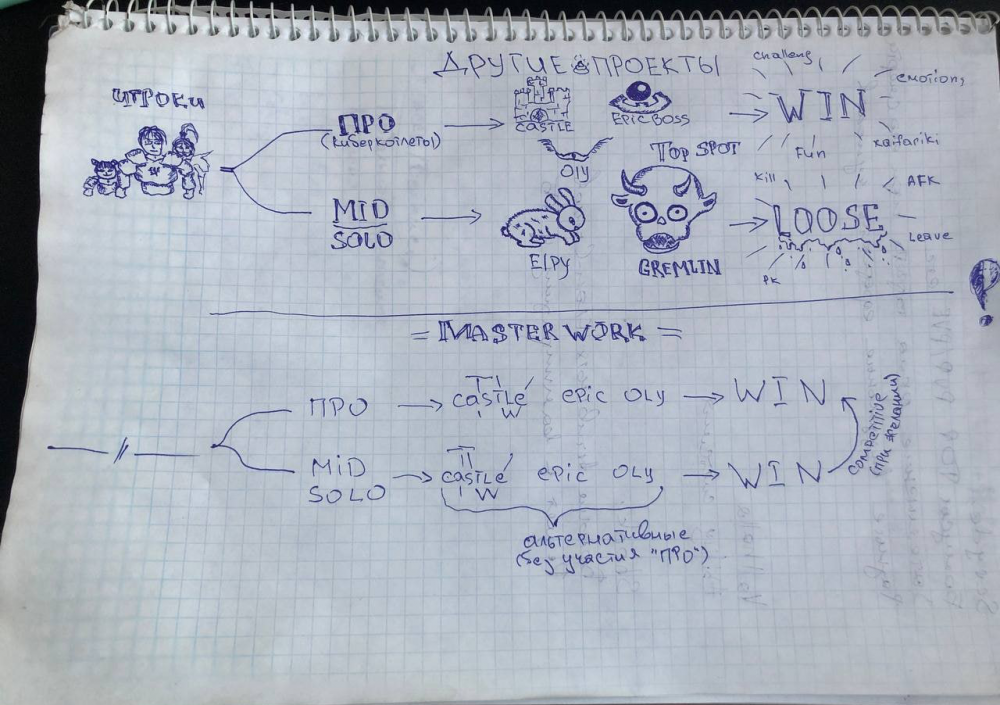 ДРУГИЕ ПРОЕКТЫ
ИГРОКИ
ПРО
(киберкотлеты)
CASTLE
EPIC BOSS
Oly
challeng
emotions
WIN
Fun
xaifariki
MID
SOLO
Elpy
TOP SPOT
GREMLIN
kill
AFK
LOOSE
Leave
PK
?
= MASTER WORK =
ПРО
castle
epic
oly
WIN
MiD
SOLO
castle
epic
oly
WIN
competitive
(при желании)
альтернативные
(без участия "ПРО")